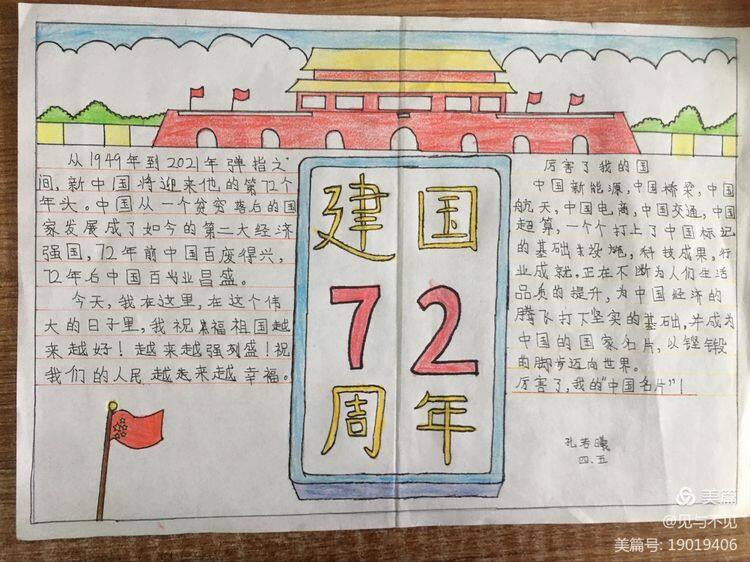 从1949年到2021年弹指之
间，新中国将迎来他的第72个
年头。中国从一个贫穷落后的国
家发展成了如今的第二大经济
强国，72年前中国百废得兴，
72年后中国百业昌盛。
今天，我在这里，在这个伟
大的日子里，我祝福祖国越
来越好！越来越强盛！祝
我们的人民越来越幸福。
建国
72
周年
厉害了我的国
中国新能源，中国桥梁，中国
航天，中国电商，中国交通，中国
超算，一个个打上了中国标记
的基础设施，科技成果，行
业成就，正在不断为人们生活
品质的提升，为中国经济的
腾飞打下坚实的基础，并成为
中国的国家名片，以铿锵
的脚步迈向世界。
厉害了，我的“中国名片”！
四．五
美篇
@见与不见
美篇号: 19019406